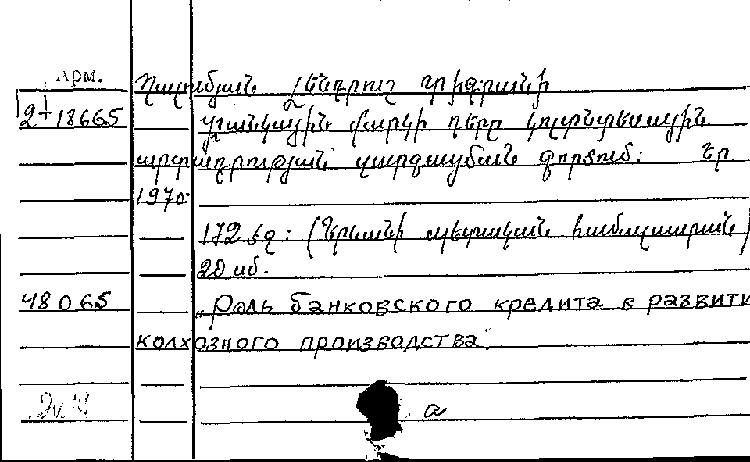 Арм.
2-18665
բանկային վարկի դերը կոլտնտեսային
արտադրության զարգացման գործում: Եր
1970.
172 էջ: (Երևանի պետական համալսարան)
20 սմ.
48065 „Роль банковского кредита в развити
колхозного производства"
а